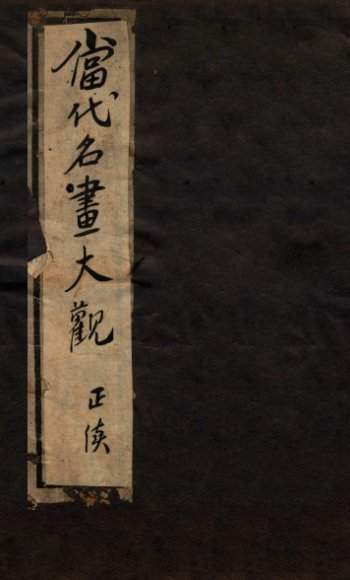 當代名畫大觀
正續